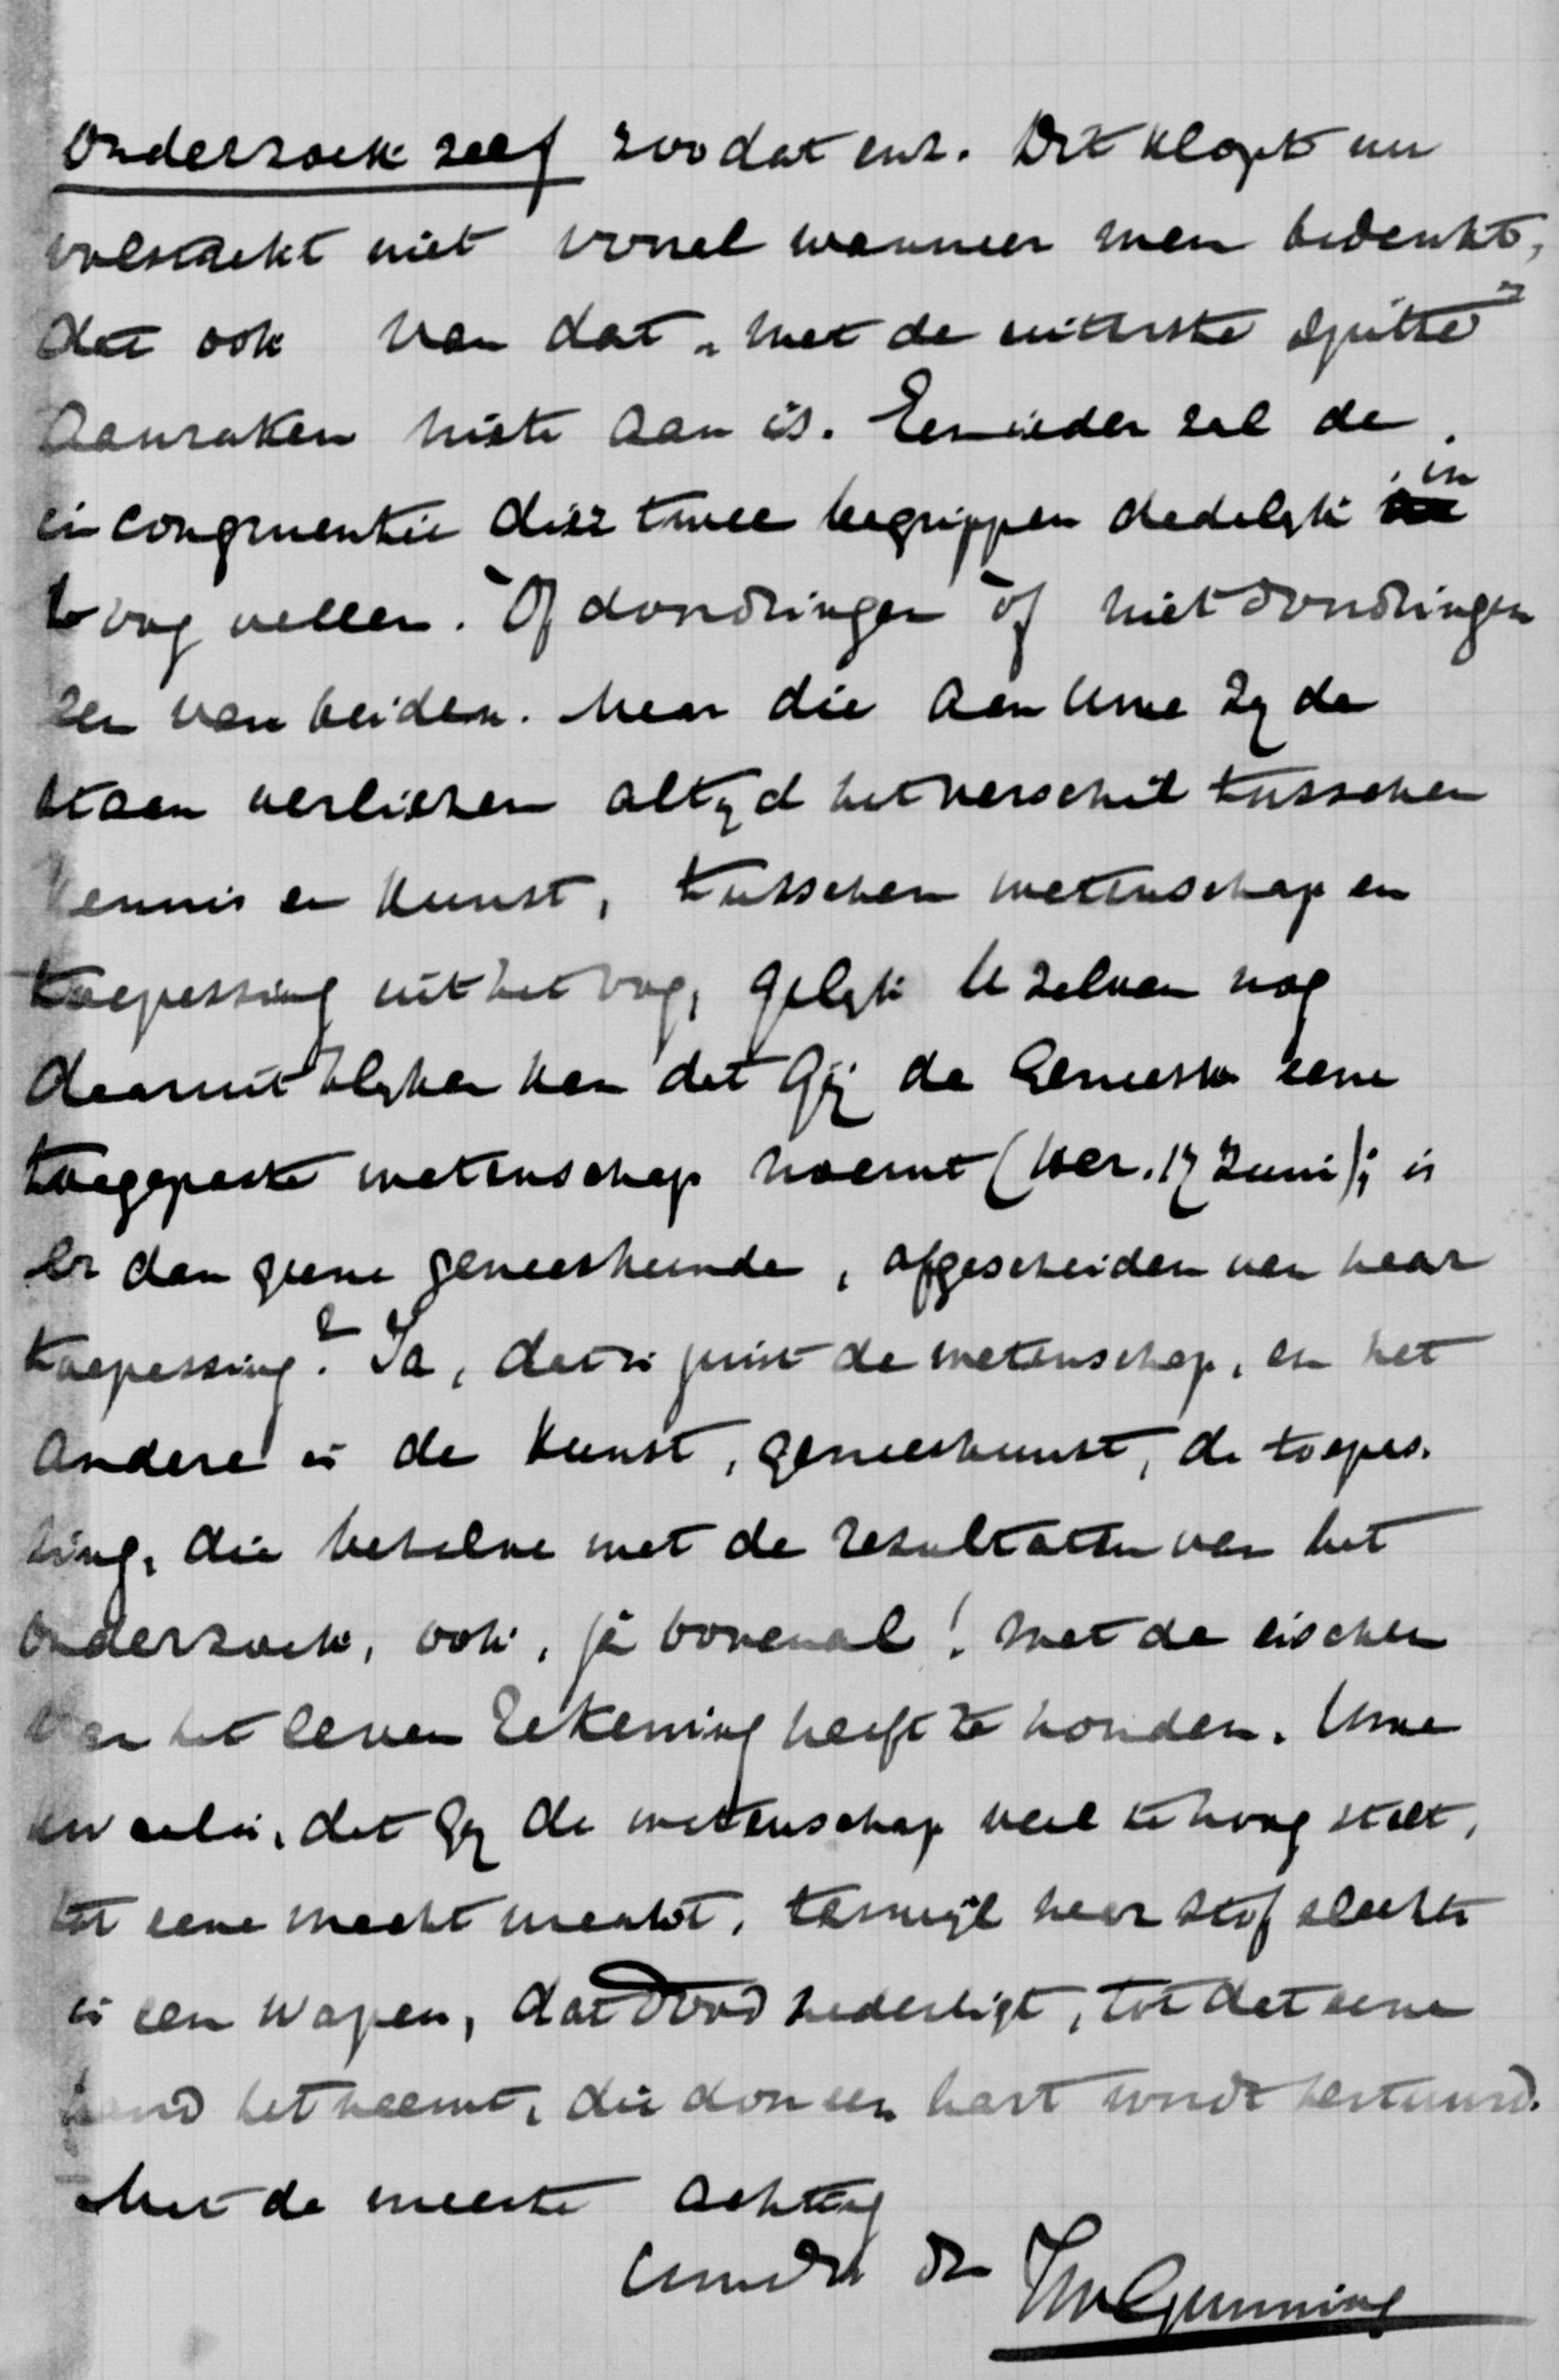 onderzoek zelf zoodat enz. Dit klopt nu
volstrekt niet vooral wanneer men bedenkt,
dat ook van dat „met de uiterste spitse”
aanraken niets aan is. Een ieder zal de
incongruentie dier twee begrippen dadelyk in
't oog vallen. Òf doordringen òf niet doordringen
een van beiden. Maar die aan Uwe zyde
staan verliezen altyd het verschil tusschen
kennis en kunst, tusschen wetenschap en
toepassing uit het oog, gelyk U zelven nog
daaruit blyken kan dat Gij de Geneesk eene
toegepaste wetenschap noemt (17 Juni); is
er dan geene geneeskunde, afgescheiden van haar
toepassing? Ja, dat is juist de wetenschap, en het
andere is de kunst, geneeskunst, de toepas-
sing, die behalve met de resultaten van het
onderzoek, ook, ja bovenal! met de eischen
van het leven rekening heeft te houden. Uwe
is, dat Gy de wetenschap veel te hoog stelt,
tot eene macht maakt, terwijl haar stof slechts
is een wapen, dat dood nederligt, tot dat eene
hand het neemt, die door een hart wordt bestuurd.
Met de meeste achting
Uw dr Dr JW Gunning